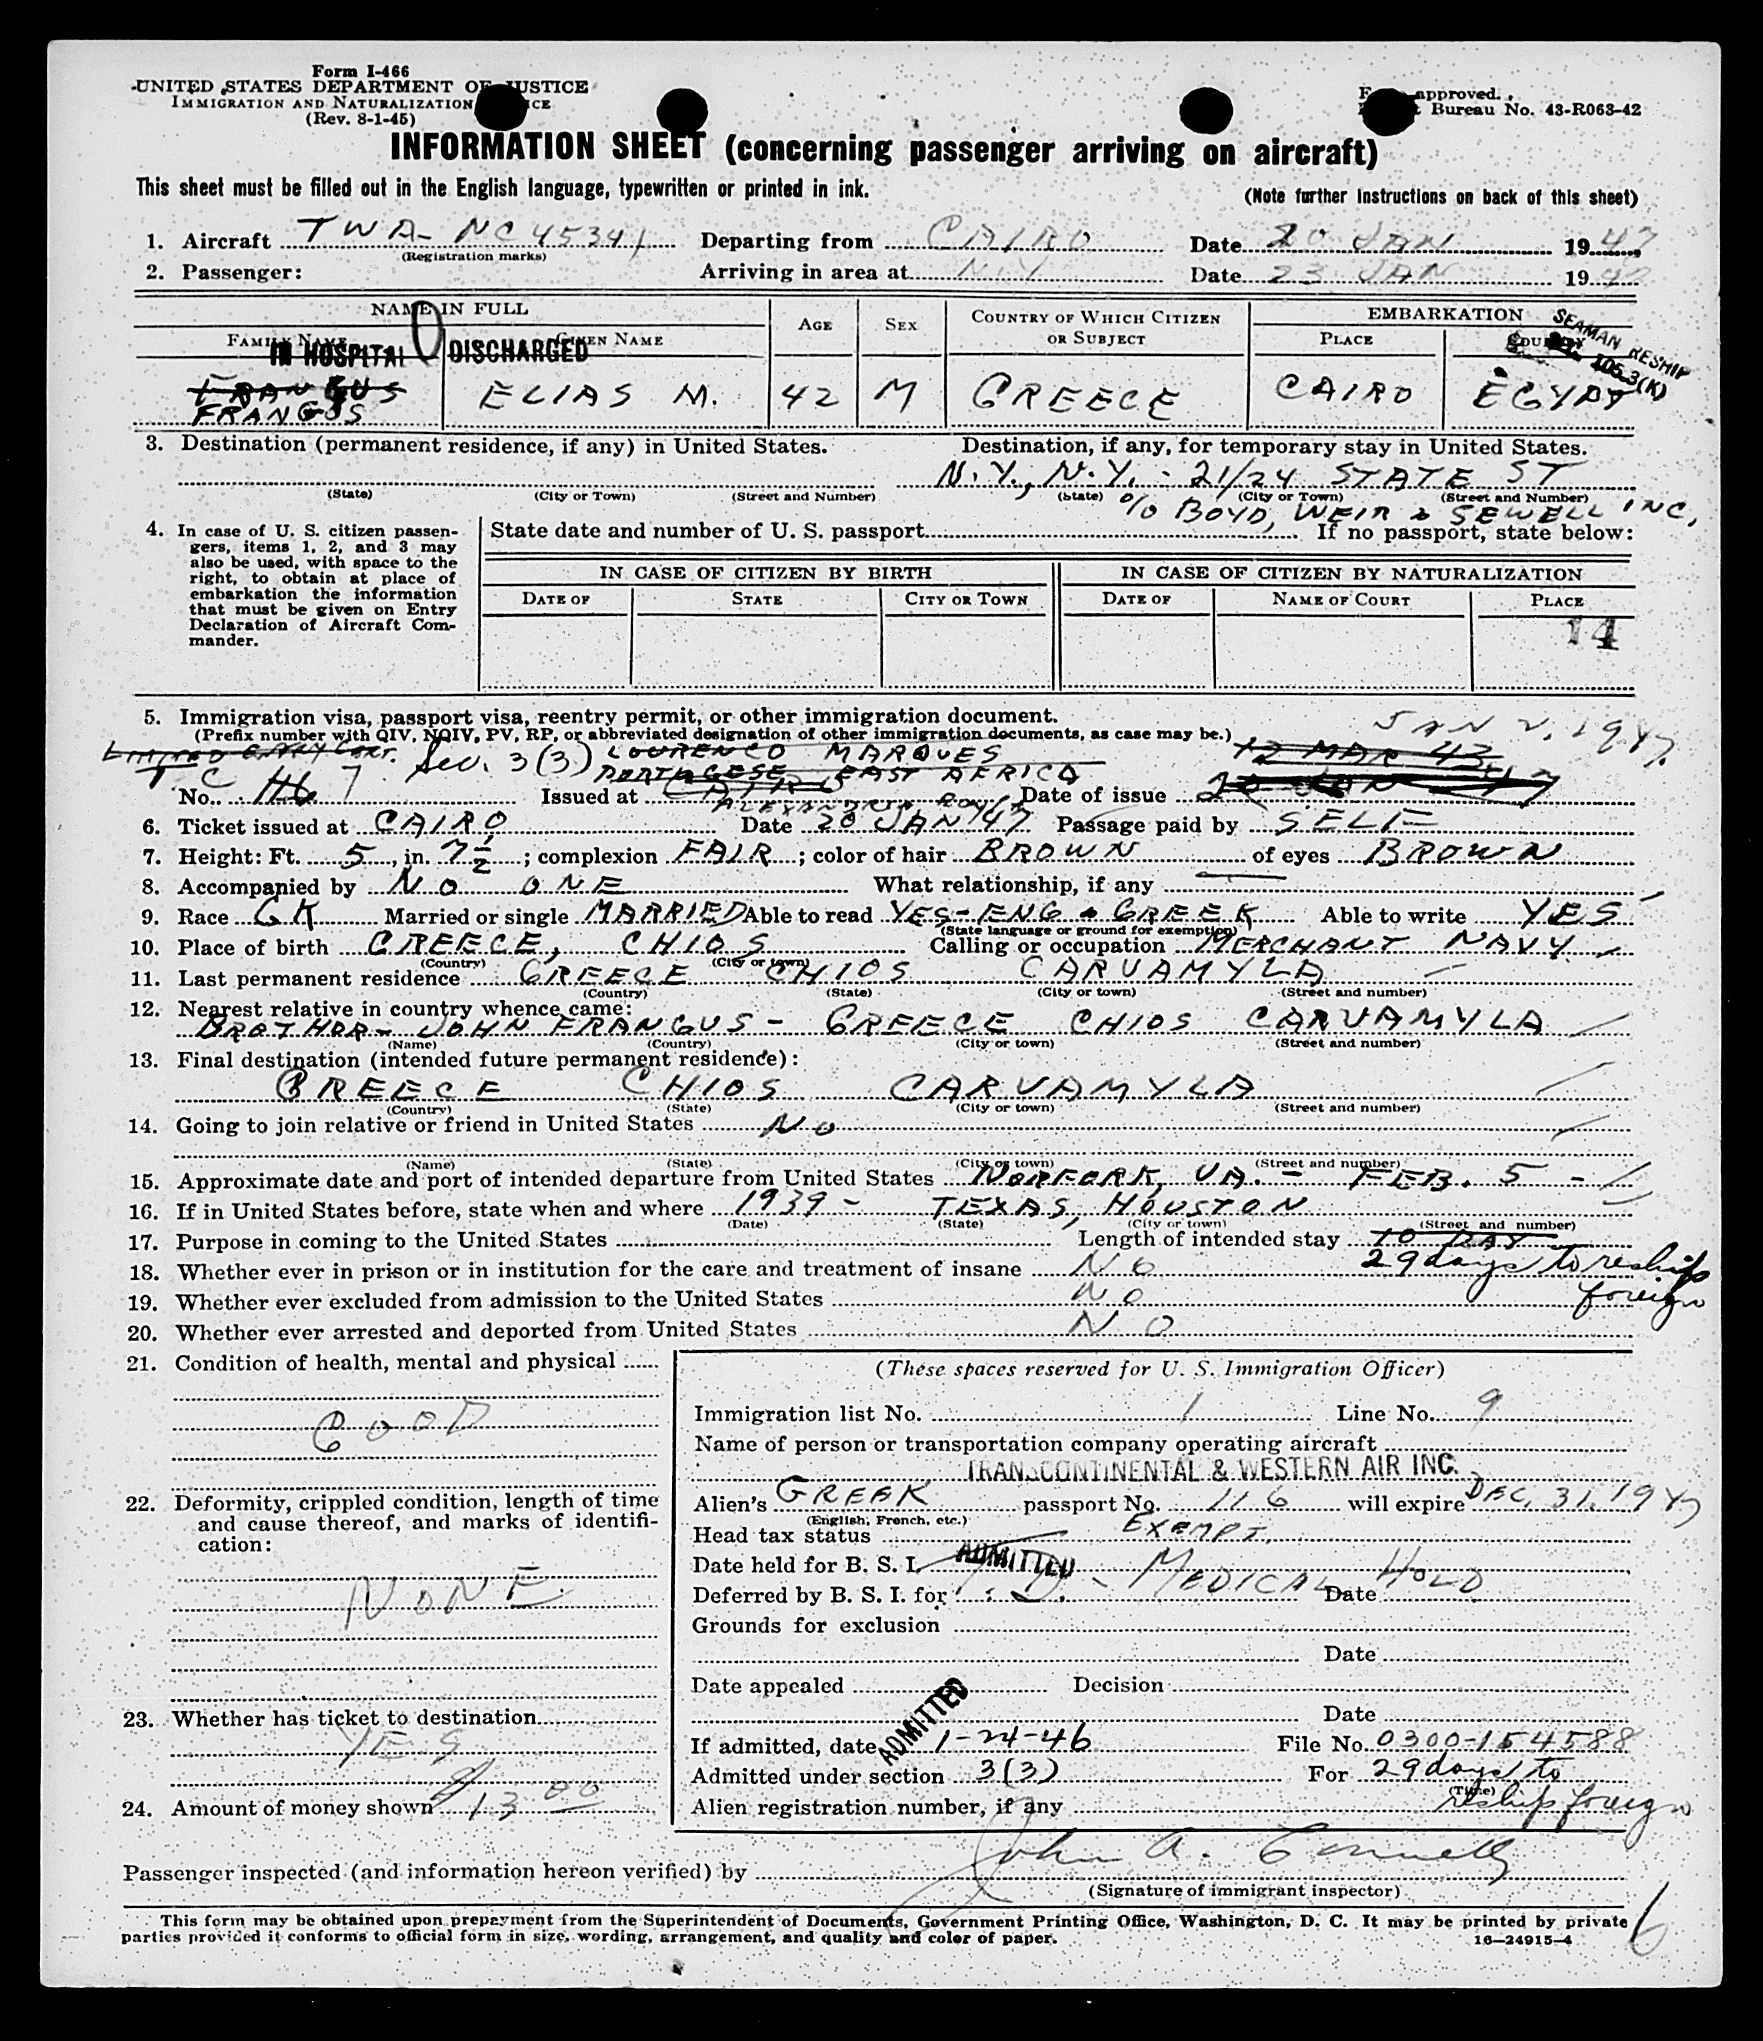 Form I-466
UNITED STATES DEPARTMENT OF JUSTICE
IMMIGRATION AND NATURALIZATION
(Rev. 8-1-45)
approved.
Bureau No. 43-R063-42
INFORMATION SHEET (concerning passenger arriving on aircraft)
This sheet must be filled out in the English language, typewritten or printed in ink.
(Note further instructions on back of this sheet)
1. Aircraft TWA- NC 45341 Departing from CAIRO Date 20 JAN 1947
(Registration marks)
2. Passenger: Arriving in area at N.Y. Date 23 JAN 1947
NAME IN FULL AGE SEX COUNTRY OF WHICH CITIZEN OR SUBJECT EMBARKATION
FAMILY NAME GIVEN NAME PLACE COUNTRY
IN HOSPITAL DISCHARGED
SEAMAN RESHIP
105.3(K)
FRANGUS
FRANGUS ELIAS M. 42 M GREECE CAIRO EGYPT
3. Destination (permanent residence, if any) in United States. Destination, if any, for temporary stay in United States.
N.Y., N.Y. - 21/24 STATE ST
(State) (City or Town) (Street and Number) (State) (City or Town) (Street and Number)
% BOYD, WEIR & SEWELL INC.
4. In case of U. S. citizen passengers, items 1, 2, and 3 may also be used, with space to the right, to obtain at place of embarkation the information that must be given on Entry Declaration of Aircraft Commander.
State date and number of U. S. passport If no passport, state below:
IN CASE OF CITIZEN BY BIRTH IN CASE OF CITIZEN BY NATURALIZATION
DATE OF STATE CITY OR TOWN DATE OF NAME OF COURT PLACE
14
5. Immigration visa, passport visa, reentry permit, or other immigration document.
JAN 2, 1947.
(Prefix number with QIV, NQIV, PV, RP, or abbreviated designation of other immigration documents, as case may be.)
LIMITED ENTRY CERT. Sec. 3(3) LOURENCO MARQUES 12 MAR 43
T C PORTUGESE EAST AFRICA
No. 7 Issued at CAIRO Date of issue 20 JAN 47
ALEXANDRIA, EGYPT
6. Ticket issued at CAIRO Date 20 JAN 47 Passage paid by SELF
7. Height: Ft. 5, in. 7 1/2; complexion FAIR; color of hair BROWN of eyes BROWN
8. Accompanied by NO ONE What relationship, if any
9. Race GK Married or single MARRIED Able to read YES - ENG & GREEK Able to write YES
(State language or ground for exemption)
10. Place of birth GREECE, CHIOS Calling or occupation MERCHANT NAVY
(Country) (City or town)
11. Last permanent residence GREECE CHIOS CARVAMYLA
(Country) (State) (City or town) (Street and number)
12. Nearest relative in country whence came:
BROTHER - JOHN FRANGUS - GREECE CHIOS CARVAMYLA
(Name) (Country) (City or town) (Street and number)
13. Final destination (intended future permanent residence):
GREECE CHIOS CARVAMYLA
(Country) (State) (City or town) (Street and number)
14. Going to join relative or friend in United States NO
(Name) (State) (City or town) (Street and number)
15. Approximate date and port of intended departure from United States NORFORK, VA. - FEB. 5 -
16. If in United States before, state when and where 1939 - TEXAS, HOUSTON
(Date) (State) (City or town) (Street and number)
17. Purpose in coming to the United States Length of intended stay 10 DAY
29 days to reship foreign
18. Whether ever in prison or in institution for the care and treatment of insane NO
19. Whether ever excluded from admission to the United States NO
20. Whether ever arrested and deported from United States NO
21. Condition of health, mental and physical
GOOD
22. Deformity, crippled condition, length of time and cause thereof, and marks of identification:
NONE
23. Whether has ticket to destination
YES
24. Amount of money shown $13 00
(These spaces reserved for U. S. Immigration Officer)
Immigration list No. 1 Line No. 9
Name of person or transportation company operating aircraft
TRANSCONTINENTAL & WESTERN AIR INC.
Alien's GREEK passport No. 116 will expire DEC. 31, 1947
(English, French, etc.)
Head tax status EXEMPT.
Date held for B. S. I. ADMITTED
Deferred by B. S. I. for - MEDICAL HOLD Date
Grounds for exclusion
Date
Date appealed Decision
Date
ADMITTED
If admitted, date 1-24-46 File No. 0300-154588
Admitted under section 3(3) For 29 days to
(Time)
Alien registration number, if any reship foreign
Passenger inspected (and information hereon verified) by John A. Connelly
(Signature of immigrant inspector)
This form may be obtained upon prepayment from the Superintendent of Documents, Government Printing Office, Washington, D. C. It may be printed by private
parties provided it conforms to official form in size, wording, arrangement, and quality and color of paper.
16-24915-4
6